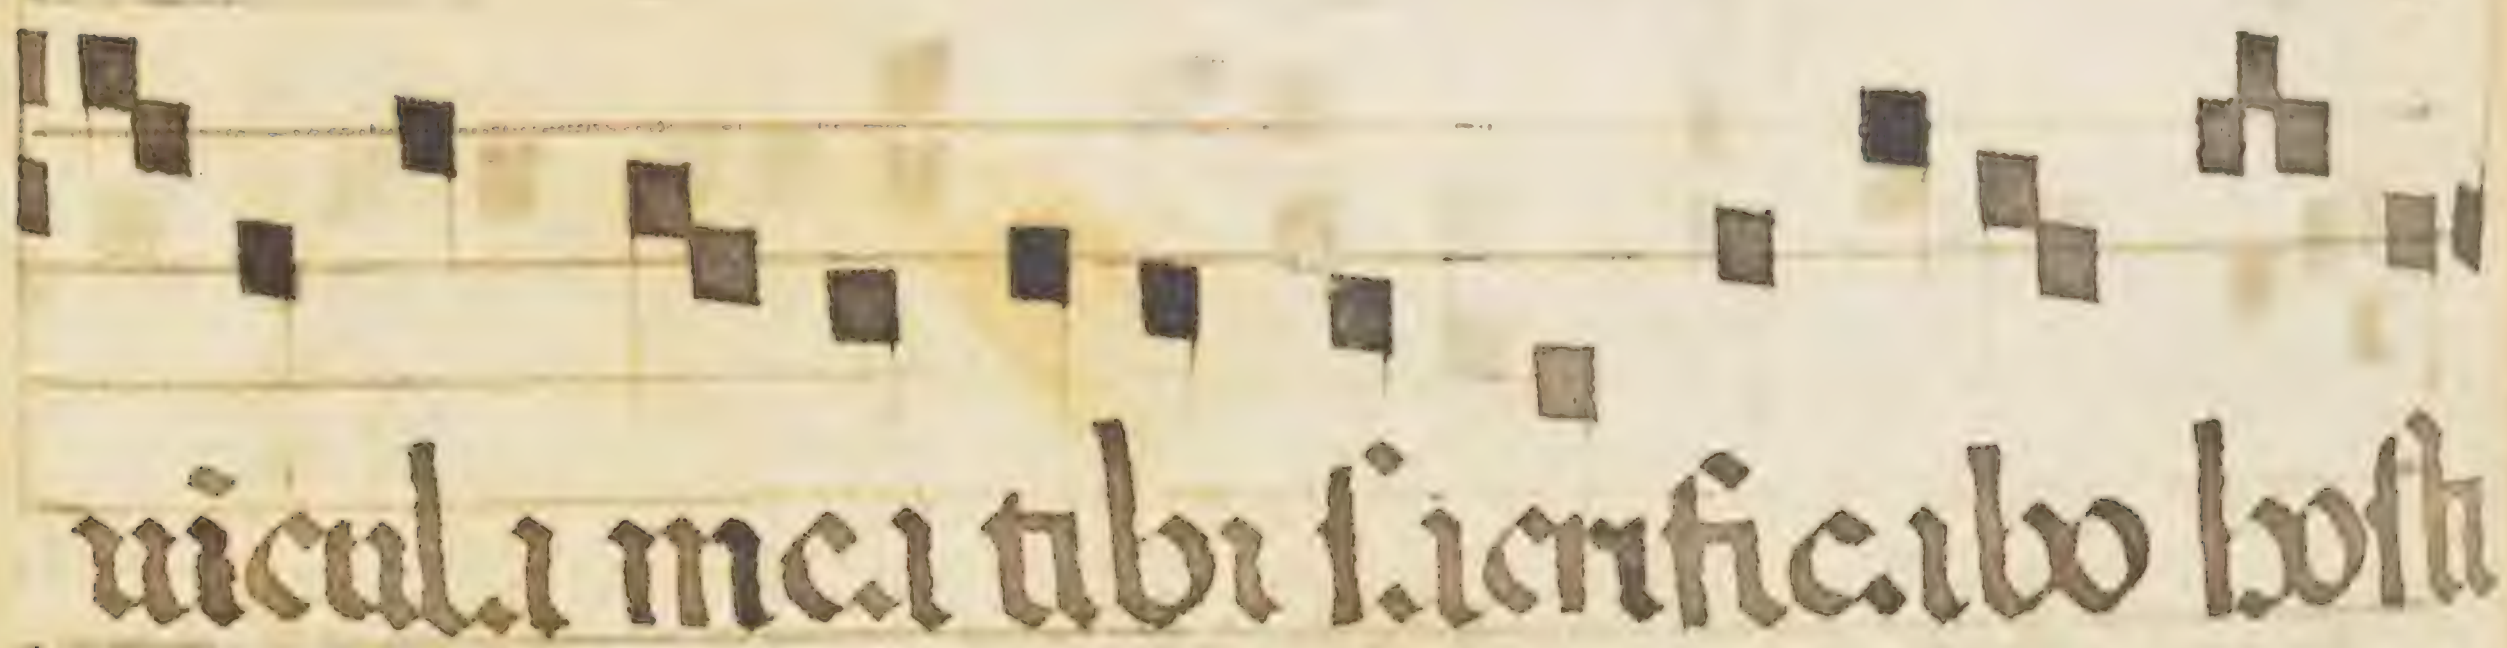 uicula mea tibi sacrificabo host